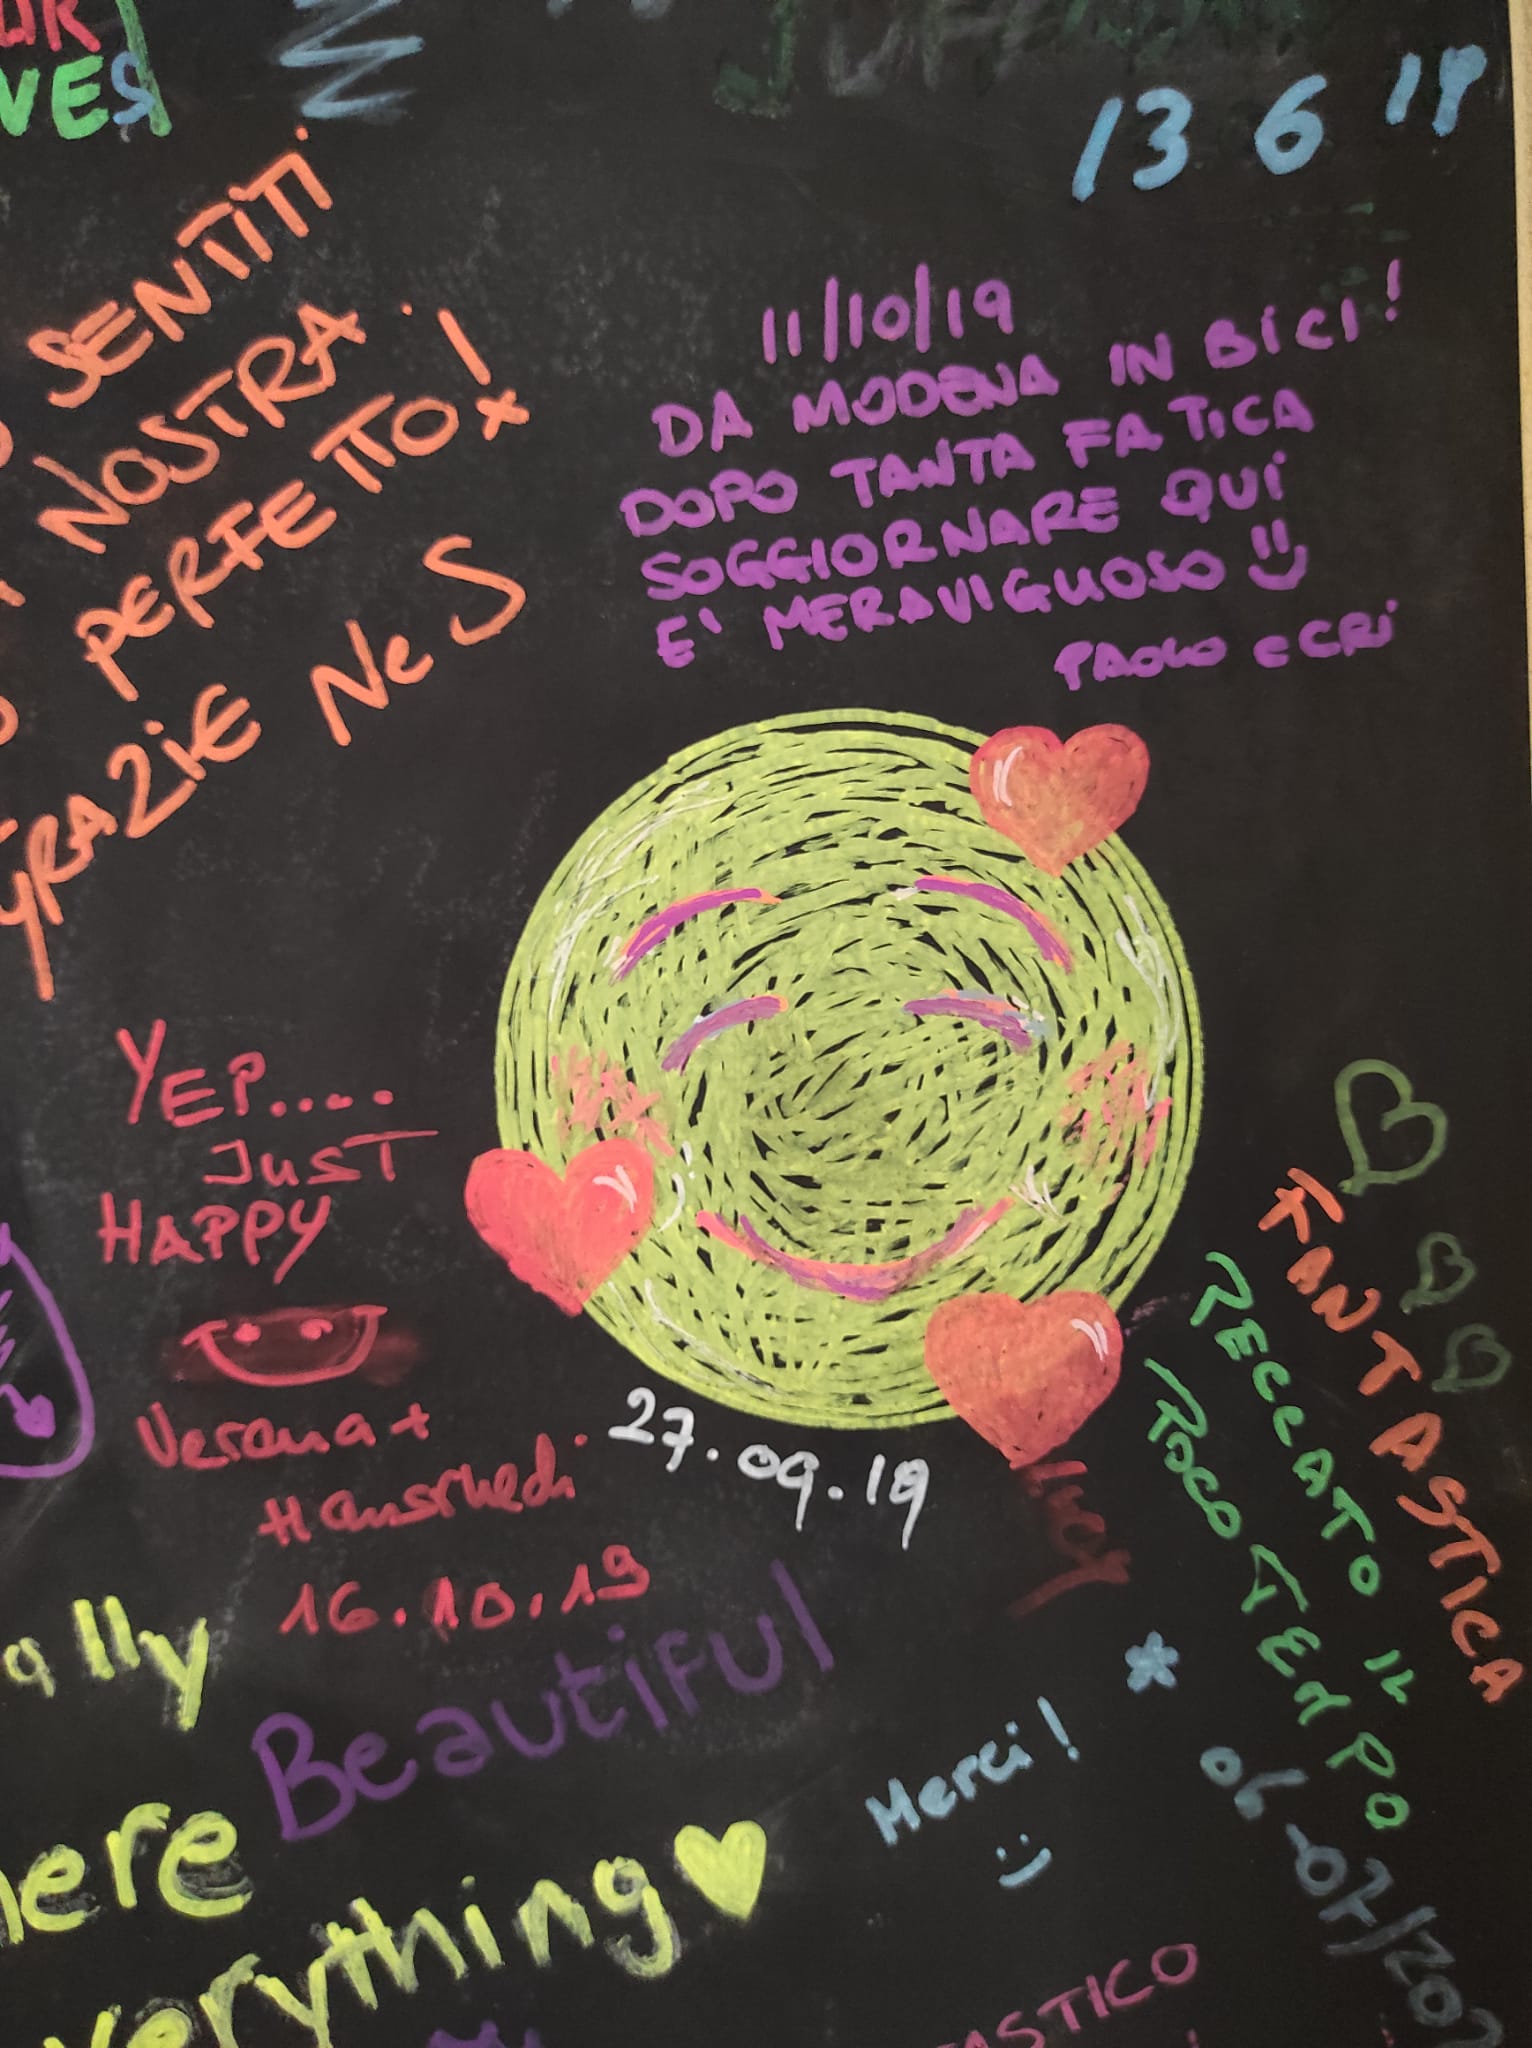 13 6 19
SENTITI
NOSTRA
PERFETTO!
GRAZIE NeS
11/10/19
DA MODENA IN BICI!
DOPO TANTA FATICA
SOGGIORNARE QUI
E' MERAVIGLIOSO
PAOLO e CRI
YEP....
JUST
HAPPY
Verena +
Hansruedi
16.10.19
27.09.19
FANTASTICA
PECCATO IL
POCO TEMPO
Beautiful
Merci!
everything